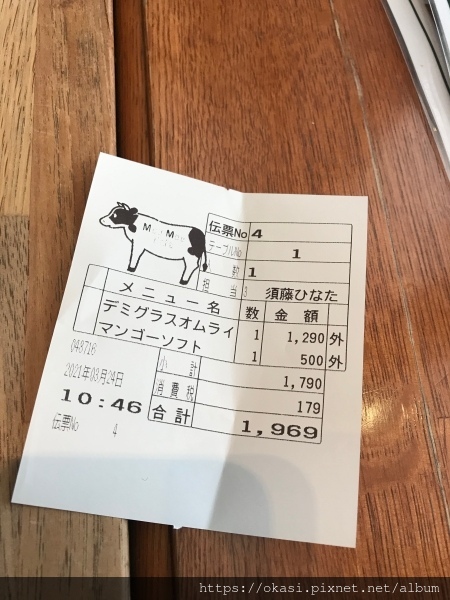 伝票No 4
テーブルNo 1
数 1
担当 須藤ひなた
メニュー名 数 金額
デミグラスオムライ 1 1,290 外
マンゴーソフト 1 500 外
小計 1,790
消費税 179
合計 1,969
048716
2021年03月24日
10:46
伝票No 4
https://okasi.pixnet.net/album